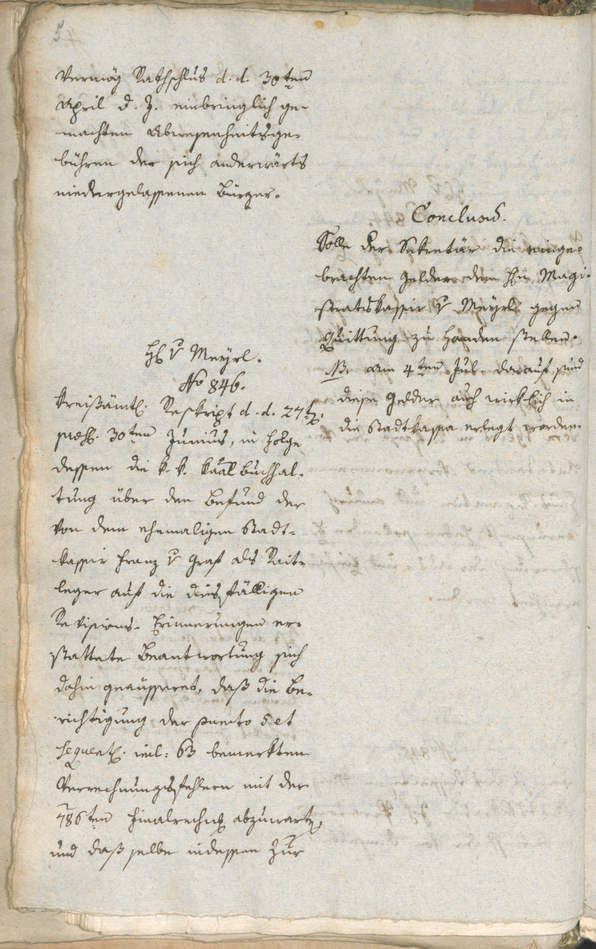 54
Vermög Rathschlus d. d. 30ten
April d. J. einbringlich ge-
machten Abwesenheitsge-
bühren der sich anderwärts
niedergelassenen Bürger.
Conclusum.
Solle der Sekretär die einge-
brachten Gelder dem Hrn Magi-
stratskassir v Meyrl gegen
Quittung zu Handen stellen.
NB. am 4ten Jul. darauf sind
diese Gelder auch wirklich in
die Stadtkassa erlegt worden.
H v Meyrl.
No 846.
Kreisämtl. Reskript d. d. 27t
præs. 30ten Junius, in Folge
dessen die k. k. Kaal Buchhal-
tung über den Befund der
von dem ehemaligen Stadt-
kassir Franz v Graf als Rait-
leger auf die diesfälligen
Revisions-Erinnerungen er-
stattete Beantwortung sich
dahin geäussert, daß die Be-
richtigung der puncto 5 et
sequent. incl: 63 bemerkten
Verrechnungsfehlern mit der
786ten Finalrechng abzuwarten,
und daß selbe indessen zur